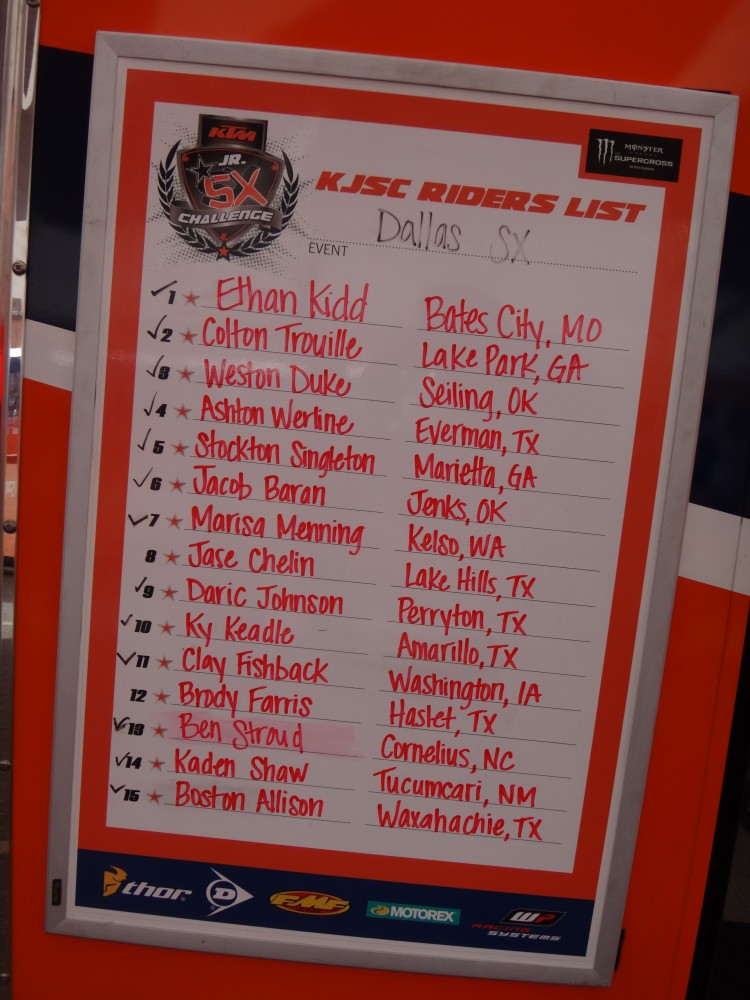 KTM
JR.
SX
CHALLENGE
MONSTER
ENERGY
SUPERCROSS
KJSC RIDERS LIST
EVENT Dallas SX
✓1 ★ Ethan Kidd Bates City, MO
✓2 ★ Colton Trouille Lake Park, GA
✓3 ★ Weston Duke Seiling, OK
✓4 ★ Ashton Werline Everman, TX
✓5 ★ Stockton Singleton Marietta, GA
✓6 ★ Jacob Baran Jenks, OK
✓7 ★ Marisa Menning Kelso, WA
8 ★ Jase Chelin Lake Hills, TX
✓9 ★ Daric Johnson Perryton, TX
✓10 ★ Ky Keadle Amarillo, TX
✓11 ★ Clay Fishback Washington, IA
12 ★ Brody Farris Haslet, TX
✓13 ★ Ben Stroud Cornelius, NC
✓14 ★ Kaden Shaw Tucumcari, NM
✓15 ★ Boston Allison Waxahachie, TX
thor D FMF MOTOREX WP
RACING SYSTEMS